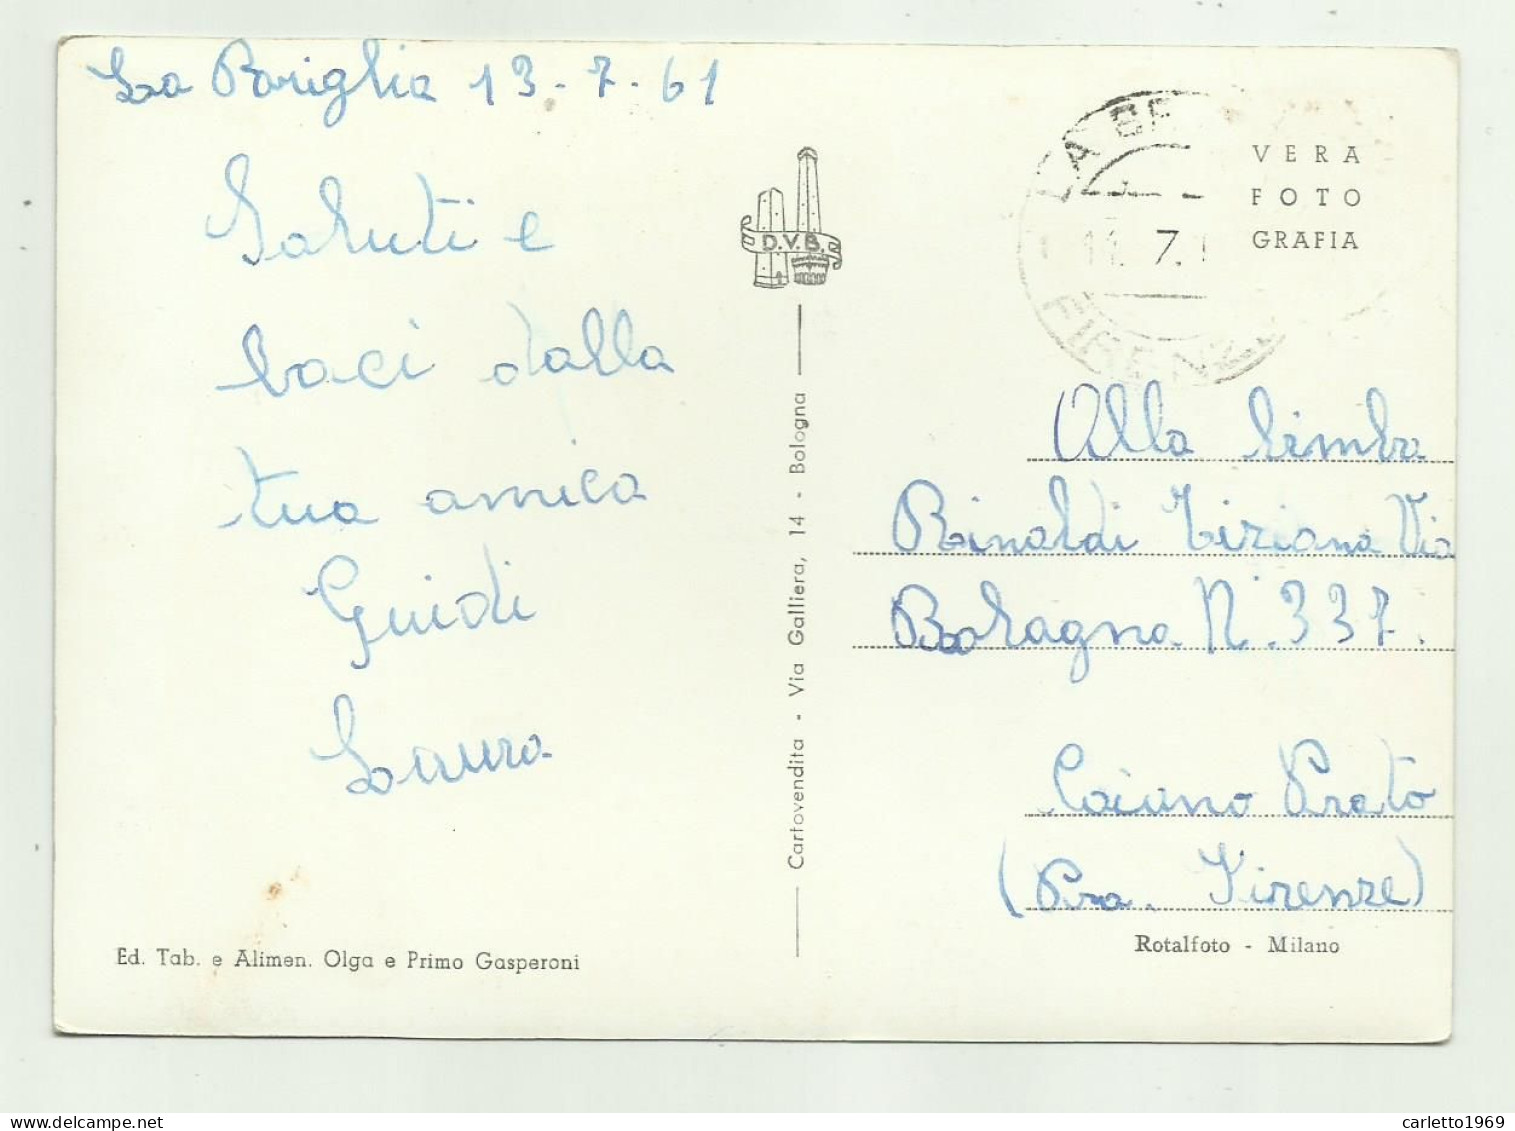 La Briglia 13-7-61
Saluti e
baci dalla
tua amica
Guidi
Laura
Ed. Tab. e Alimen. Olga e Primo Gasperoni
D.V.B.
Cartovendita - Via Galliera, 14 - Bologna
LA BR
7.
FIRENZE
VERA
FOTO
GRAFIA
Alla bimba
Rinaldi Tiziana Via
Bologna N. 337.
Coiano Prato
(Pro. Firenze)
Rotalfoto - Milano
carletto1969
delcampe.net